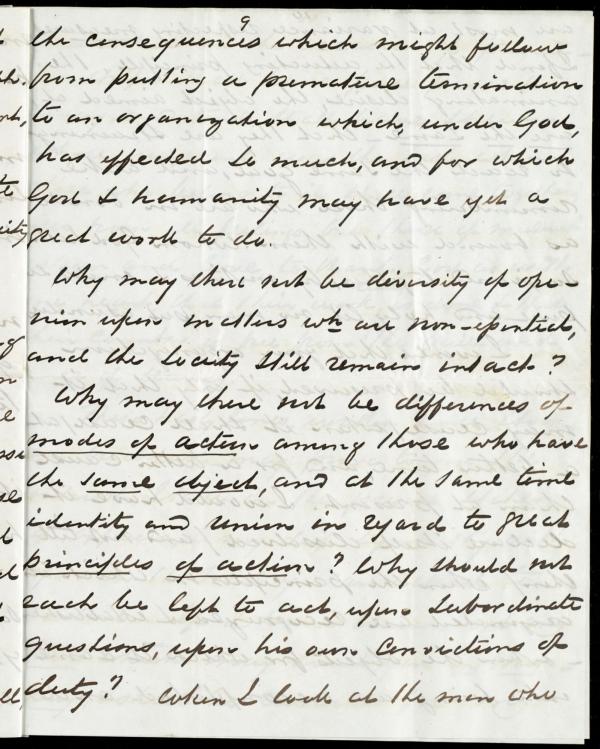 9
the consequences which might follow
from putting a premature termination
to an organization which, under God,
has effected so much, and for which
God & humanity may have yet a
great work to do.
Why may there not be diversity of opi-
nion upon matters wh are non-essential,
and the Society still remain intact?
Why may there not be differences of
modes of action among those who have
the same object, and at the same time
identity and union in regard to great
principles of action? Why should not
each be left to act, upon subordinate
questions, upon his own convictions of
duty? When I look at the men who